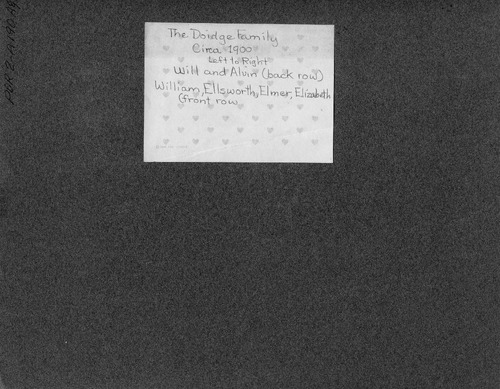 The Doidge Family
Circa 1900
Left to Right
Wilt and Alvin (back row)
William, Ellsworth, Elmer, Elizabeth
(front row